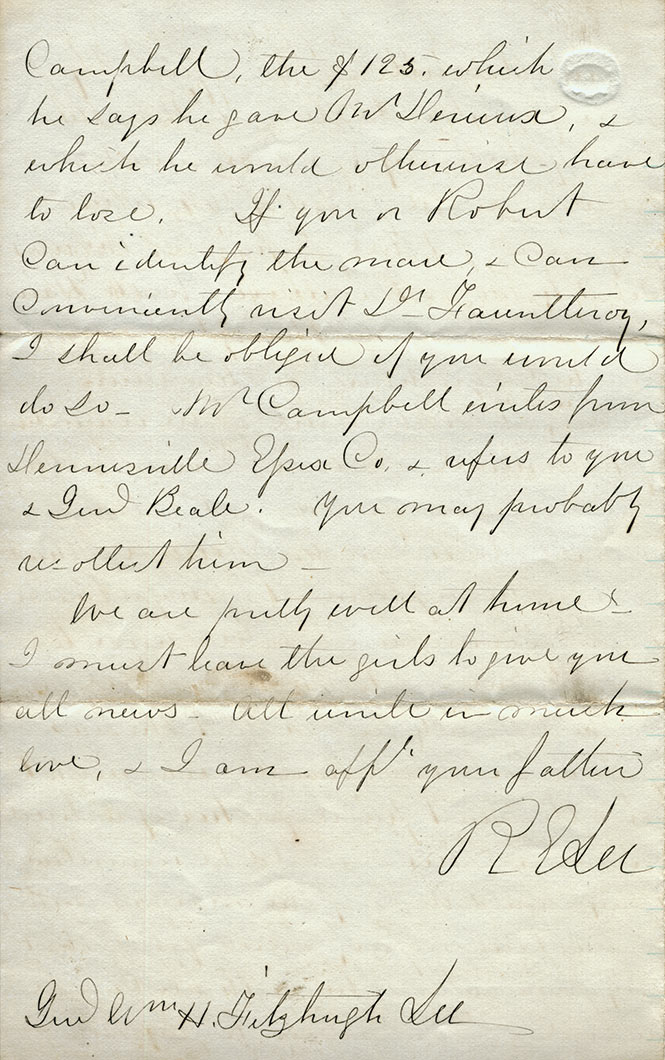 Campbell, the $125. which
he says he gave Mr
which he would otherwise have
to lose. If you or Robert
can identify the mare, & can
conveniently visit Dr Fauntleroy,
I shall be obliged if you would
do so - Mr Campbell writes from
Essex Co. & refers to you
& Genl Beale. You may probably
recollect him -
We are pretty well at home &
I must leave the girls to give you
all news - All unite in much
love, & I am affly your father
R E Lee
Genl Wm H. Fitzhugh Lee